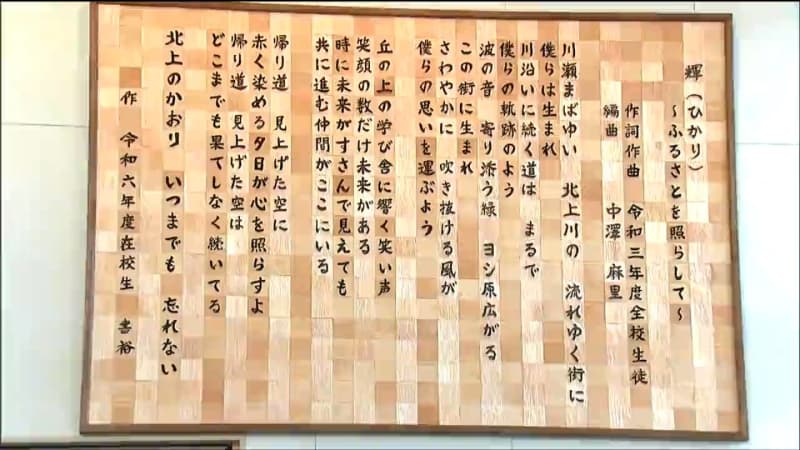 輝(ひかり)
~ふるさとを照らして~
作詞作曲 令和三年度全校生徒
編曲 中澤 麻里
川瀬まばゆい 北上川の 流れゆく街に
僕らは生まれ
川沿いに続く道は まるで
僕らの軌跡のよう
波の音 寄り添う緑 ヨシ原広がる
この街に生まれ
さわやかに 吹き抜ける風が
僕らの思いを運ぶよう
丘の上の学び舎に響く笑い声
笑顔の数だけ未来がある
時に未来がすさんで見えても
共に進む仲間がここにいる
帰り道 見上げた空に
赤く染める夕日が心を照らすよ
帰り道 見上げた空は
どこまでも果てしなく続いてる
北上のかおり いつまでも 忘れない
作 令和六年度在校生 書裕